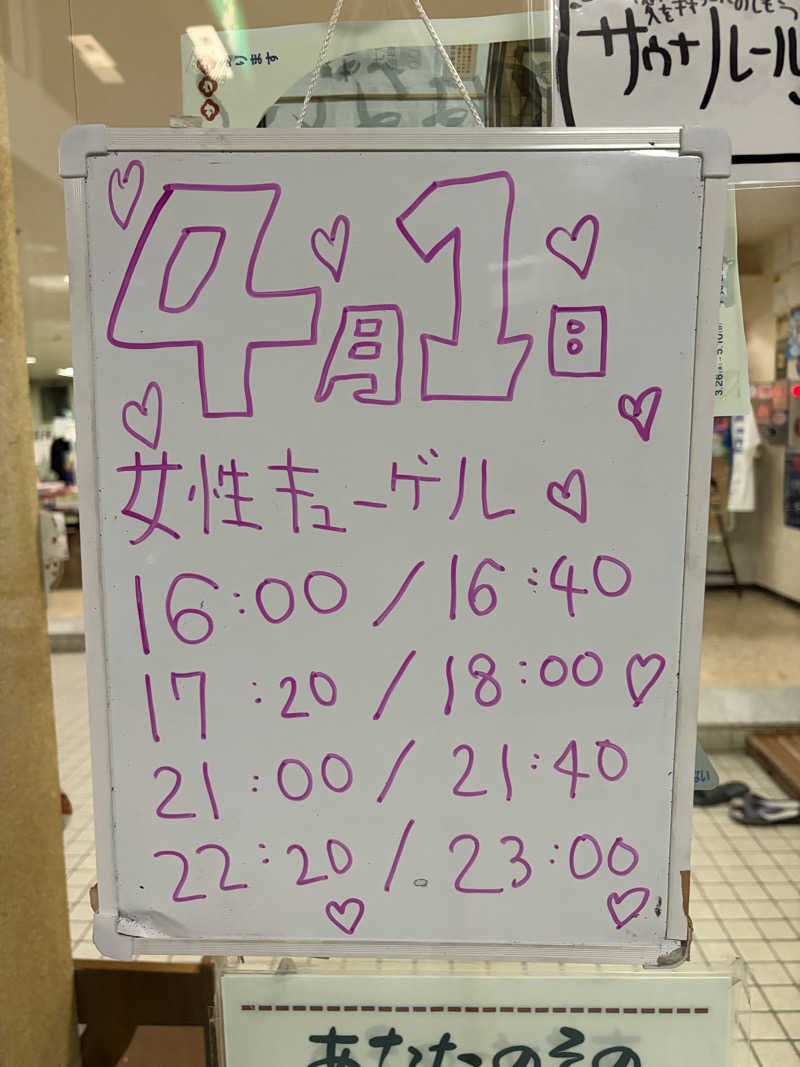 ります
サウナルール
4月1日
女性キューゲル
16:00 / 16:40
17:20 / 18:00
21:00 / 21:40
22:20 / 23:00
あなたのその